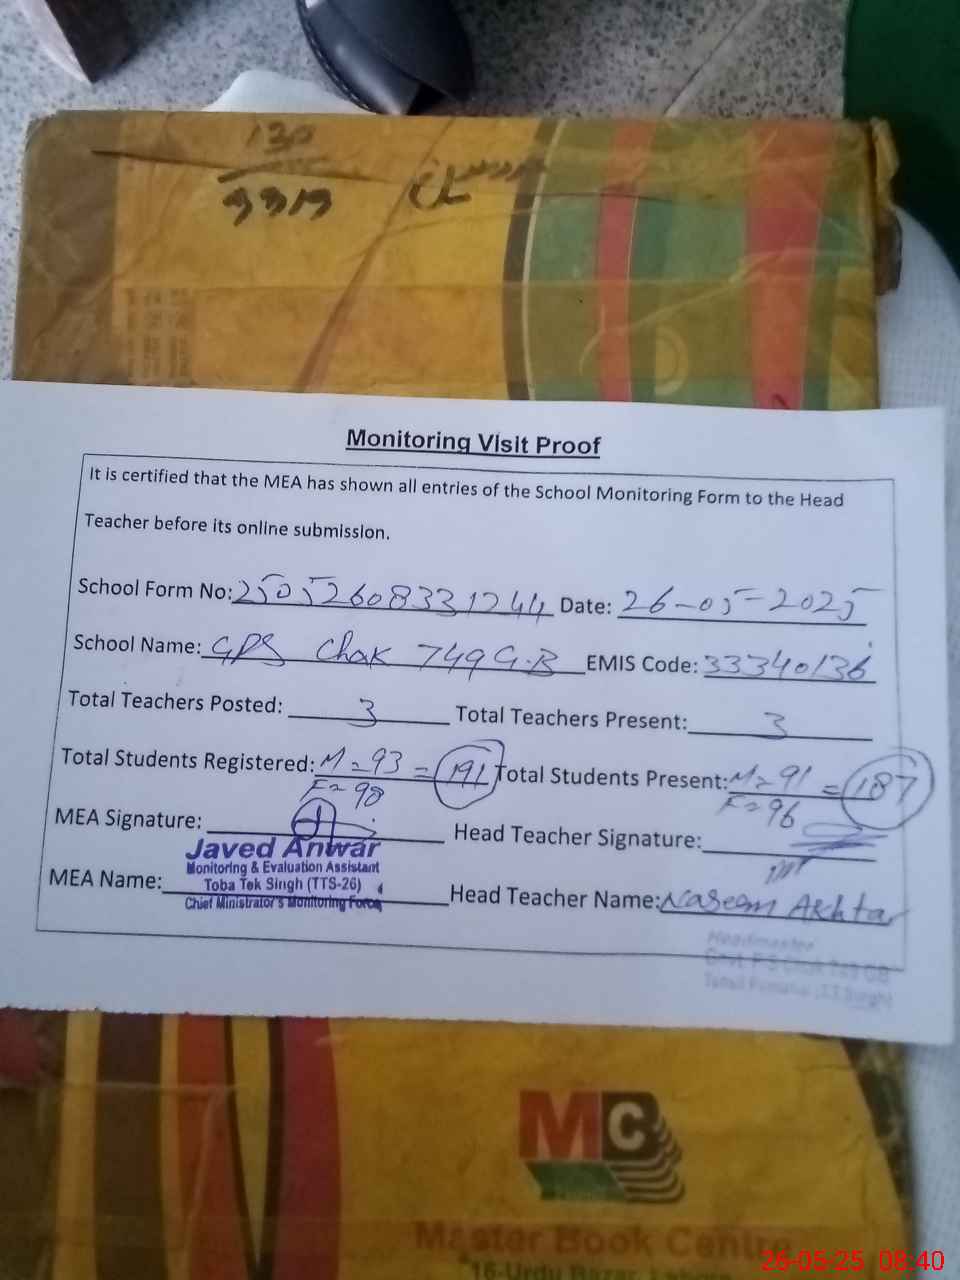 130
3319
Monitoring Visit Proof
It is certified that the MEA has shown all entries of the School Monitoring Form to the Head
Teacher before its online submission.
School Form No: 25052608331244 Date: 26-05-2025
School Name: GPS Chak 749 G.B EMIS Code: 33340136
Total Teachers Posted: 3 Total Teachers Present: 3
Total Students Registered: M=93 = 191 Total Students Present: M=91 = 187
F=98 F=96
MEA Signature: Head Teacher Signature:
Javed Anwar
Monitoring & Evaluation Assistant
Toba Tek Singh (TTS-26)
Chief Ministrator's Monitoring Force
MEA Name: Head Teacher Name: Naseem Akhtar
Headmaster
MC
Master Book Centre
16-Urdu Bazar,
26-05-25 08:40